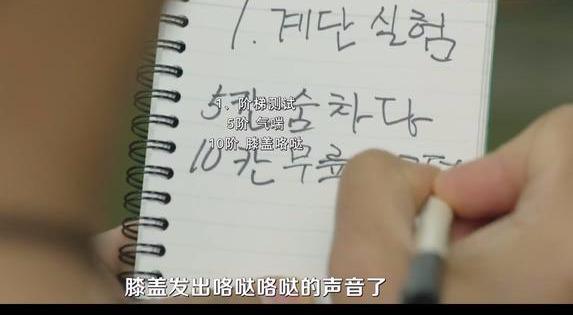 1. 계단 실험
5칸 숨차다
10칸 무릎
1、阶梯测试
5阶 气喘
10阶 膝盖咯哒
膝盖发出咯哒咯哒的声音了